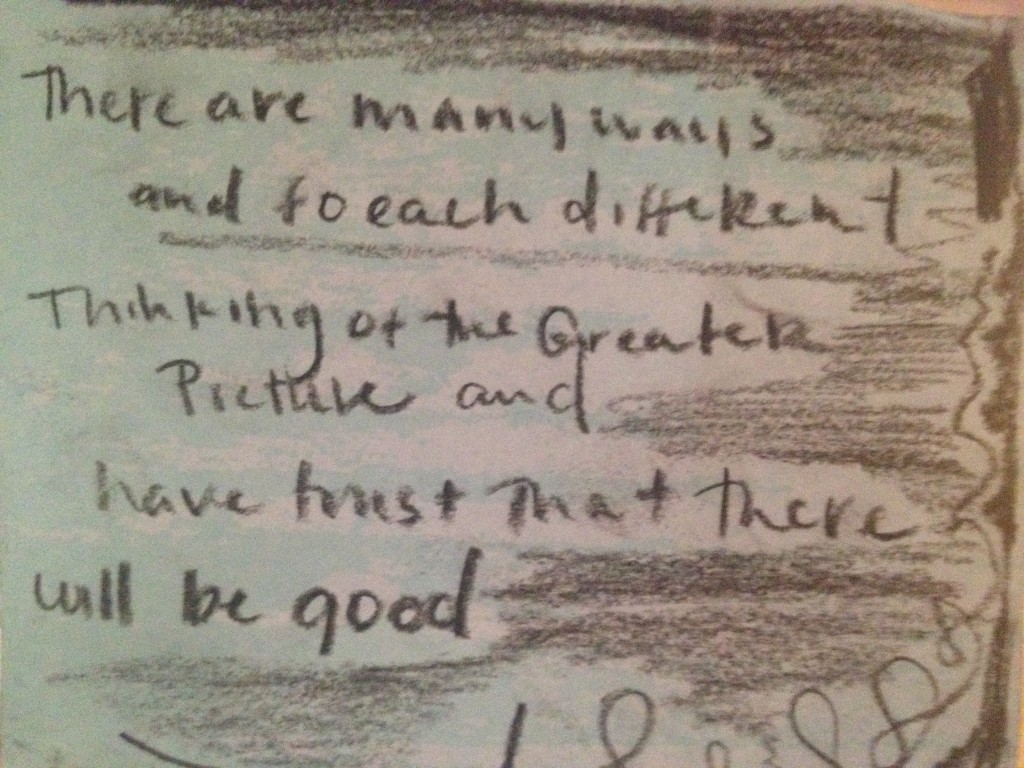 There are many ways
and to each different
Thinking of the Greater
Picture and
have trust That There
will be good